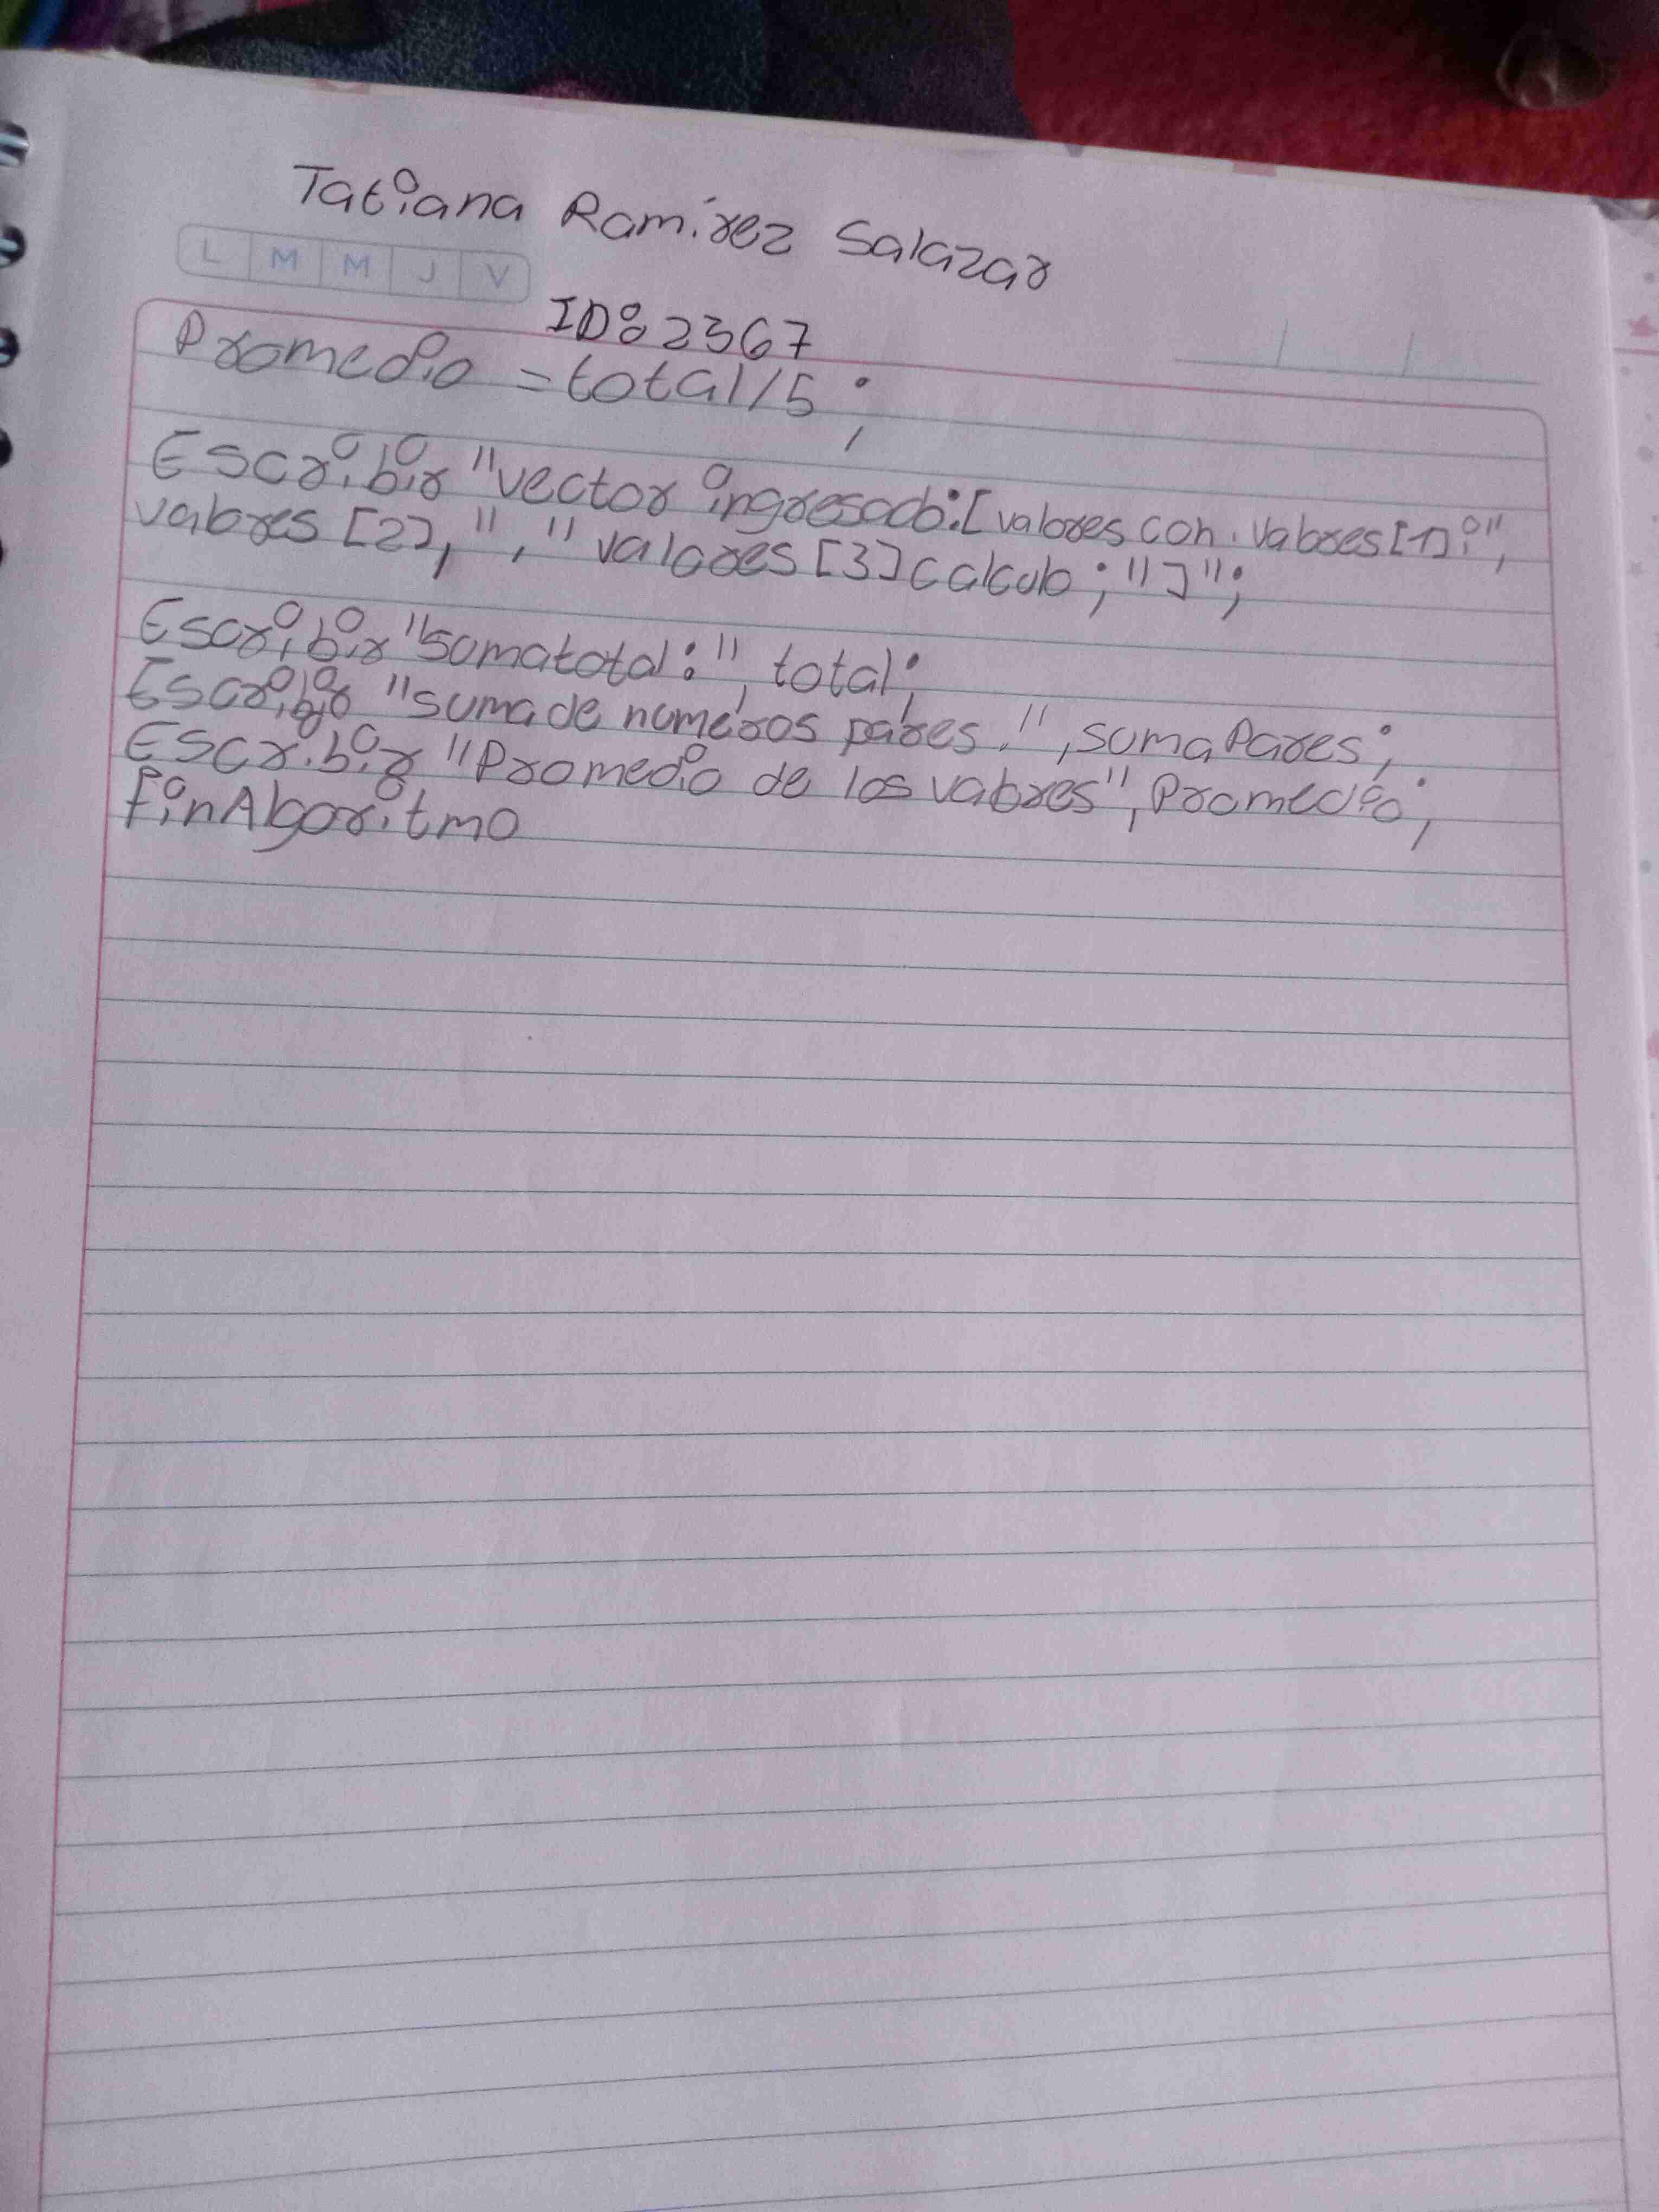 Tatiana Ramírez Salazar
L M M J V
ID: 2367
Promedio = total/5;
Escribir "vector ingresado: [valores con. valores[1]:",
valores [2], "," valores [3] calculo; "]";
Escribir "Suma total:", total;
Escribir "suma de numéros pares.", suma Pares;
Escribir "Promedio de los valores", Promedio;
finAlgoritmo